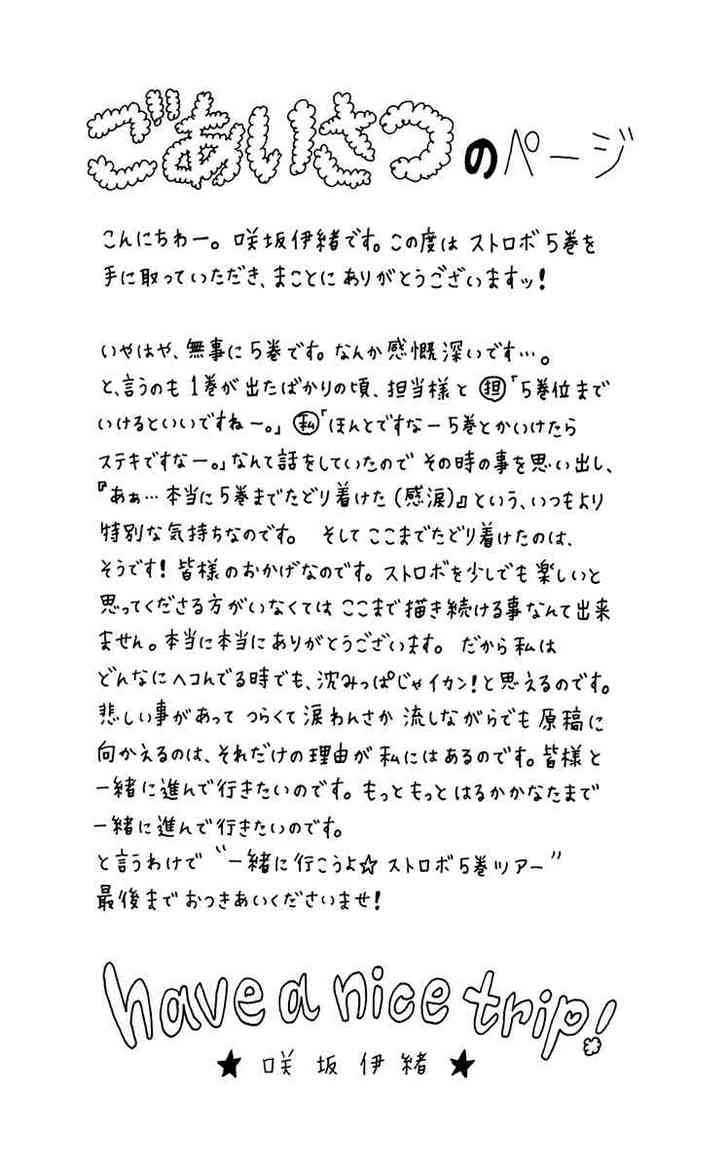 ごあいさつのページ
こんにちわー。咲坂伊緒です。この度は ストロボ5巻を
手に取っていただき、まことに ありがとうございますッ!
いやはや、無事に5巻です。なんか感慨深いです…。
と、言うのも 1巻が出たばかりの頃、担当様と 担「5巻位まで
いけるといいですねー。」 私「ほんとですなー5巻とかいけたら
ステキですなー。」なんて話をしていたので その時の事を思い出し、
『あぁ…本当に5巻までたどり着けた(感涙)』という、いつもより
特別な気持ちなのです。 そして ここまでたどり着けたのは、
そうです! 皆様のおかげなのです。ストロボを少しでも 楽しいと
思ってくださる方がいなくては ここまで描き続ける事なんて出来
ません。本当に本当にありがとうございます。 だから私は
どんなにヘコんでる時でも、沈みっぱじゃイカン!と思えるのです。
悲しい事があって つらくて涙わんさか 流しながらでも 原稿に
向かえるのは、それだけの理由が私にはあるのです。皆様と
一緒に進んで行きたいのです。もっともっと はるかかなたまで
一緒に進んで行きたいのです。
と言うわけで “一緒に行こうよ☆ ストロボ5巻ツアー”
最後まで おつきあいくださいませ!
have a nice trip!
★ 咲坂伊緒 ★